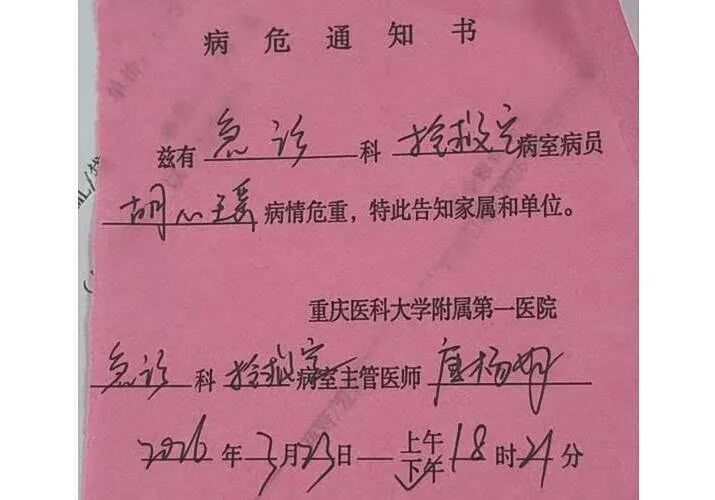 病危通知书
兹有 急诊 科 抢救室 病室病员
胡心瑗 病情危重，特此告知家属和单位。
重庆医科大学附属第一医院
急诊 科 抢救室 病室主管医师 唐杨
2026年3月23日 上午
下午 18时21分